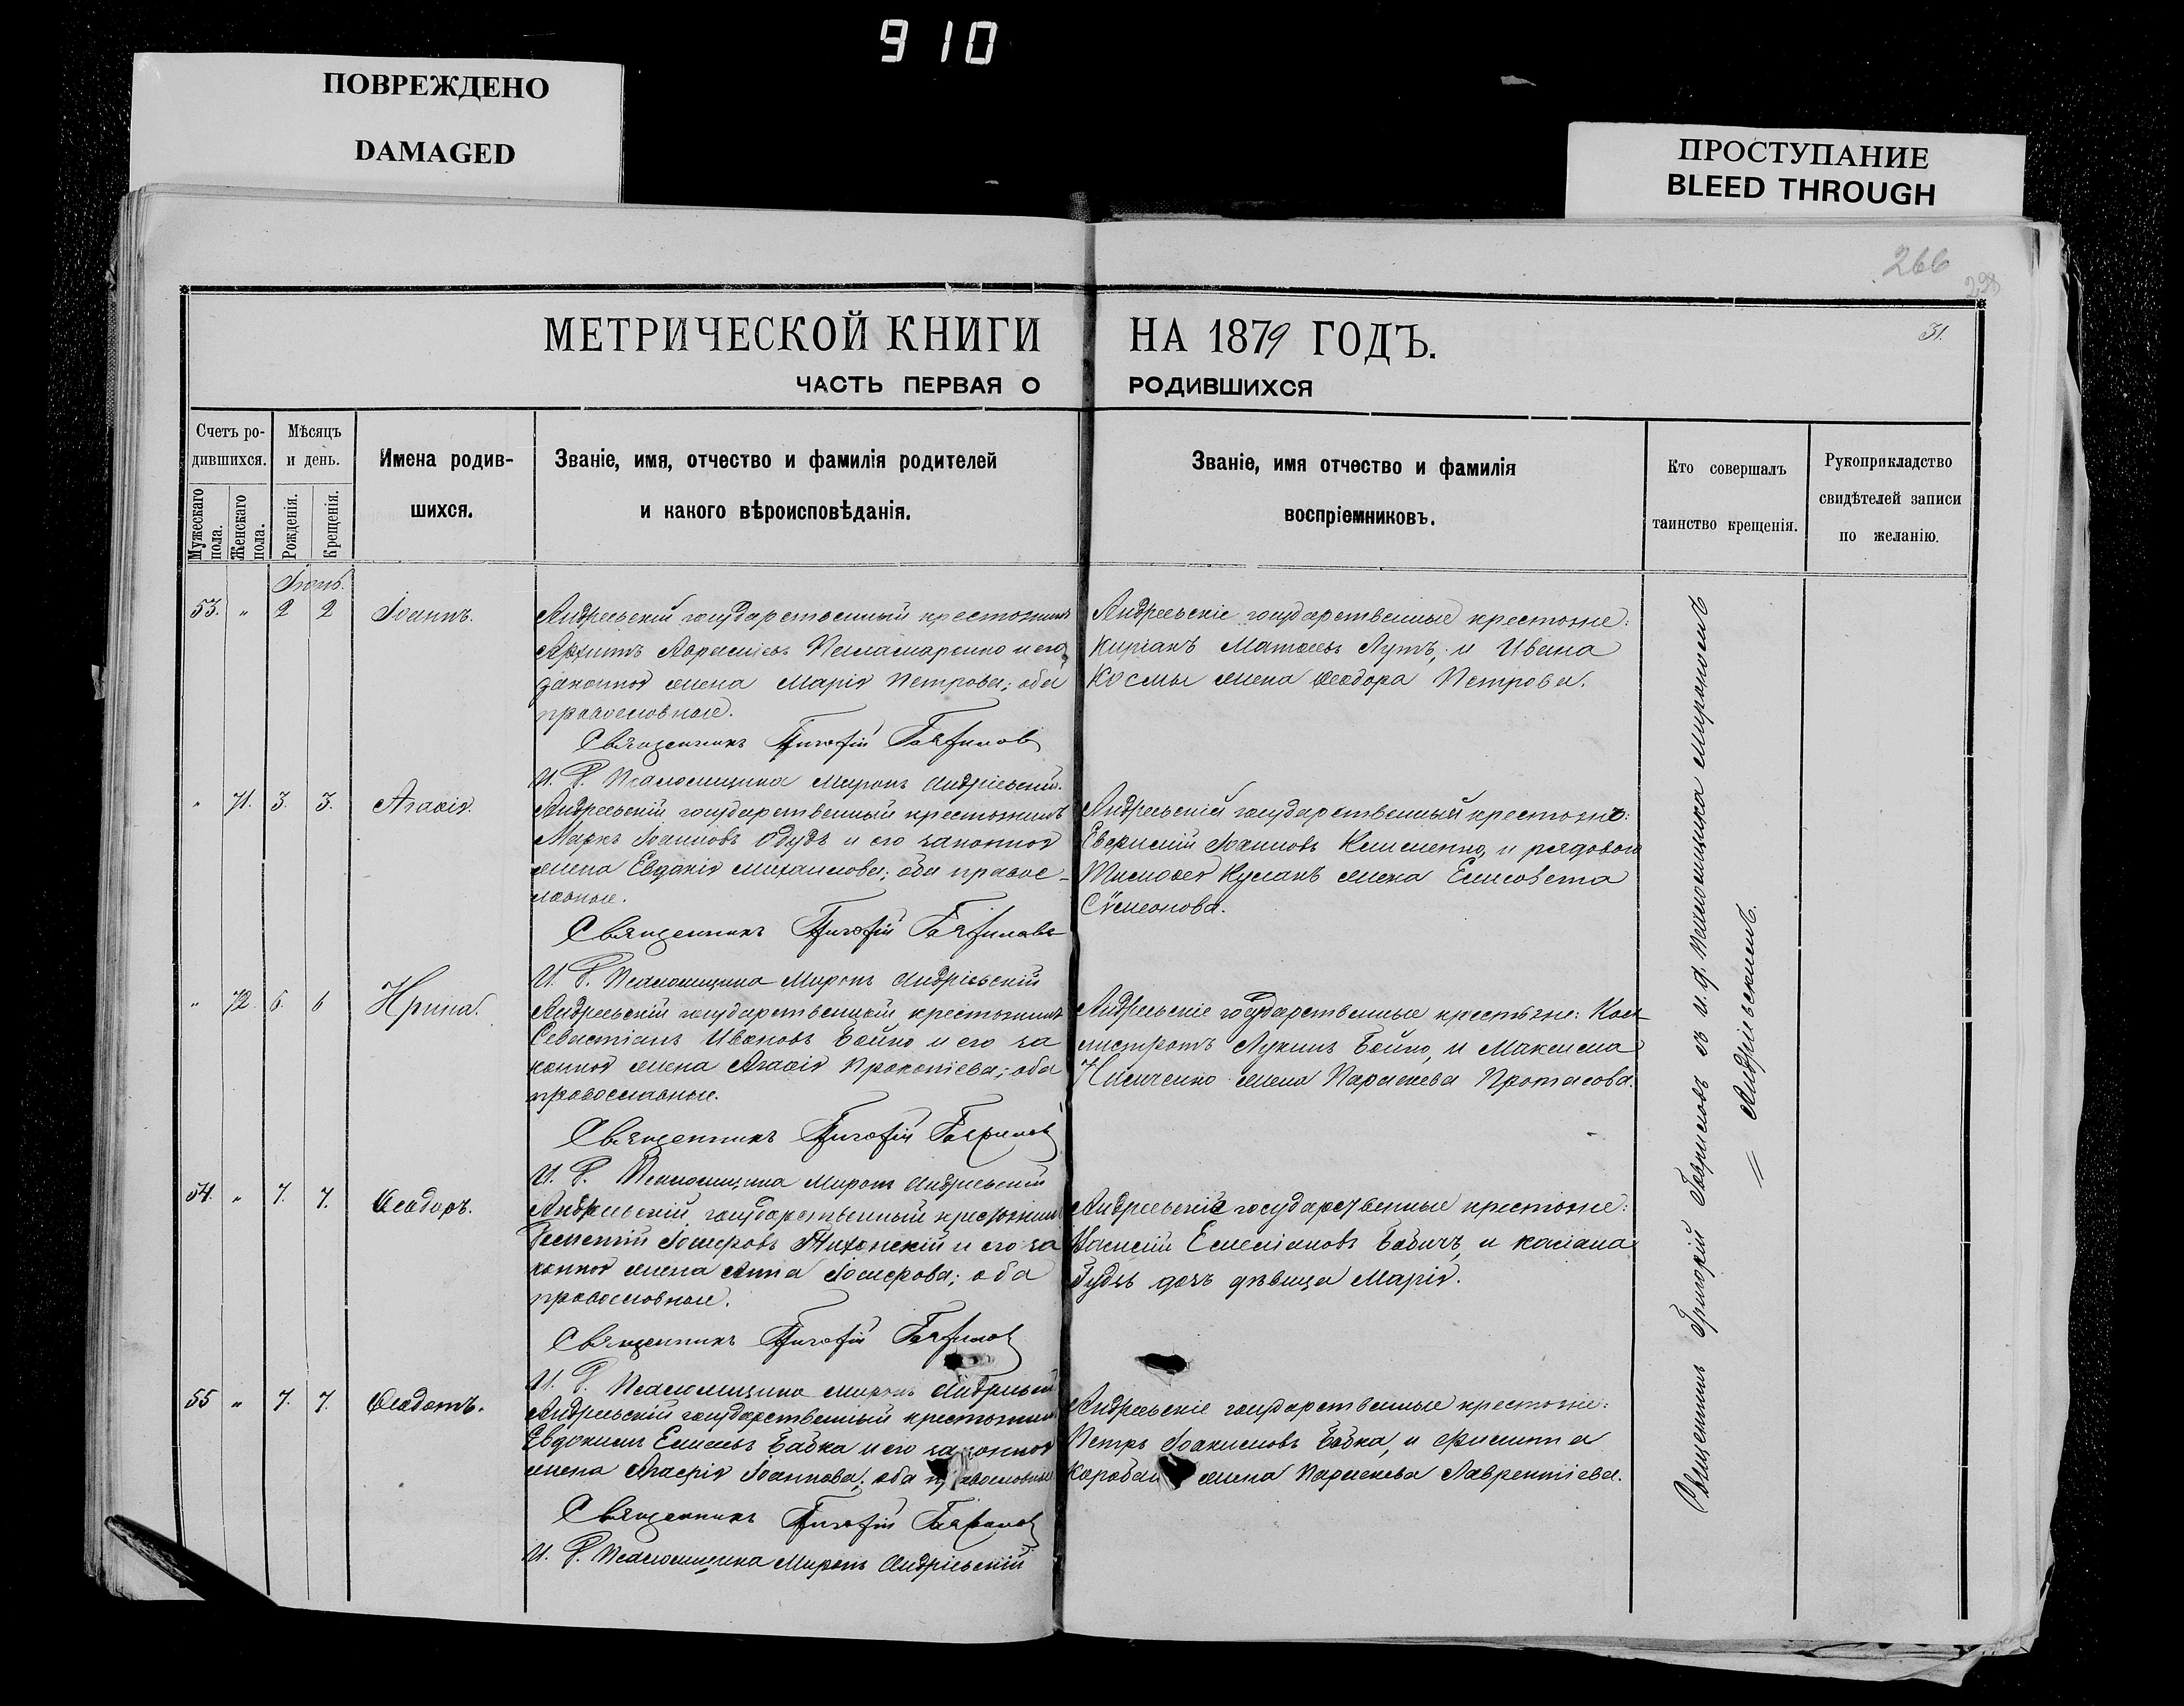 910
ПОВРЕЖДЕНО
DAMAGED
ПРОСТУПАНИЕ
BLEED THROUGH
266
298
31.
МЕТРИЧЕСКОЙ КНИГИ НА 1879 ГОДЪ.
ЧАСТЬ ПЕРВАЯ О РОДИВШИХСЯ
Счетъ ро-
дившихся.
Мужескаго пола.
Женскаго пола.
Мѣсяцъ
и день.
Рожденія.
Крещенія.
Имена родив-
шихся.
Званіе, имя, отчество и фамилія родителей
и какого вѣроисповѣданія.
Званіе, имя отчество и фамилія
воспріемниковъ.
Кто совершалъ
таинство крещенія.
Рукоприкладство
свидѣтелей записи
по желанію.
53. " 2 2 Іоаннъ.
Андреевскій государственный крестянинъ
и его
законноя жена Марія Петрова; оба
православные.
Священникъ Григорій Гавриловъ
И. Д. Псаломщика Миронъ Андріевскій.
Андреевскіе государственные крестяне:
Кипріанъ Матвеевъ Лутъ, и Ивана
Космы жена Ѳеодора Петрова.
" 71. 3. 3. Агафія.
Андреевскій государственный крестянинъ
Маркъ Іоанновъ Дудъ и его законноя
жена Евдокія Михаилова; оба правос-
лавные.
Священникъ Григорій Гавриловъ
И. Д. Псаломщика Миронъ Андріевскій
Андреевскій государственный крестяне:
Іоанновъ Клименко, и рядового
Кулакъ жена Елисовета
Сѵмеонова.
" 72. 6. 6 Ирина.
Андреевскій государственный крестянинъ
Севастіанъ Ивановъ Бойко и его за
конноя жена Агафія Прокопіева; оба
православные.
Священникъ Григорій Гавриловъ
И. Д. Псаломщика Миронъ Андріевскій
Андреевскіе государственные крестьяне: Кал-
листратъ Лукинъ Бойко, и Максима
жена Параскева Протасова.
54. " 7. 7. Ѳеодоръ.
Андреевскій государственный крестянинъ
Іосифовъ Тихонскій и его за
конноя жена Анна Іосифова; оба
православные.
Священникъ Григорій Гавриловъ
И. Д. Псаломщика Миронъ Андріевскій
Андреевскіе государственные крестяне:
Василій Емеліановъ Бабичъ, и Касіана
дочь дѣвица Марія.
55 " 7. 7. Ѳеодотъ.
Андреевскій государственный крестянинъ
Евдокимъ Бабка и его законноя
жена Агафія Іоаннова; оба православные
Священникъ Григорій Гавриловъ
И. Д. Псаломщика Миронъ Андріевскій
Андреевскіе государственные крестяне:
Петръ Іоакимовъ Бабка, и Филипа
жена Параскева Лаврентіева.
Священникъ Григорій Гавриловъ съ и. д. псаломщика Мирономъ
Андріевскимъ.